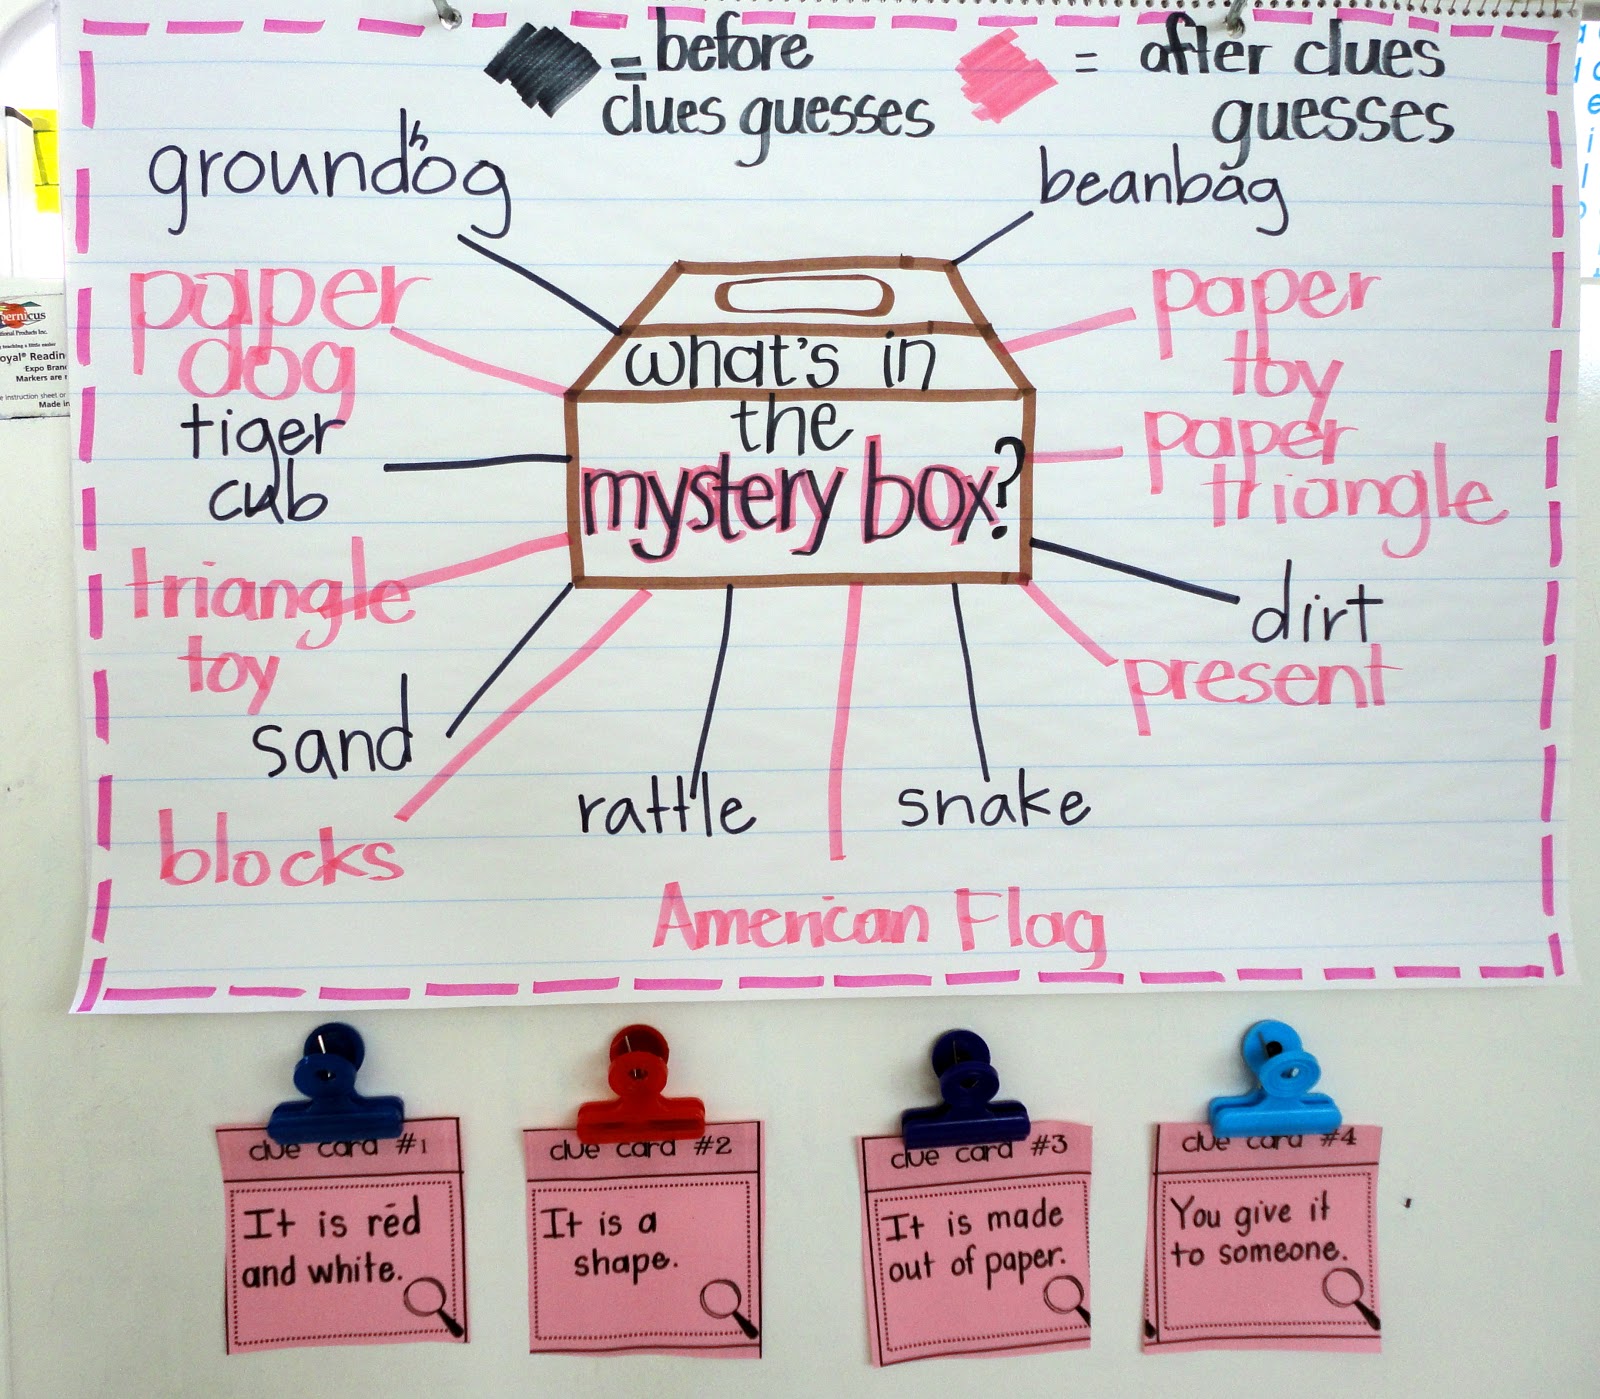 = before
clues guesses
= after clues
guesses
groundhog
beanbag
paper
dog
paper
toy
what's in
the
mystery box?
tiger
cub
paper
triangle
triangle
toy
dirt
present
sand
rattle
snake
blocks
American Flag
clue card #1
It is red
and white.
clue card #2
It is a
shape.
clue card #3
It is made
out of paper.
clue card #4
You give it
to someone.
Expo Bran
Markers are
Made in